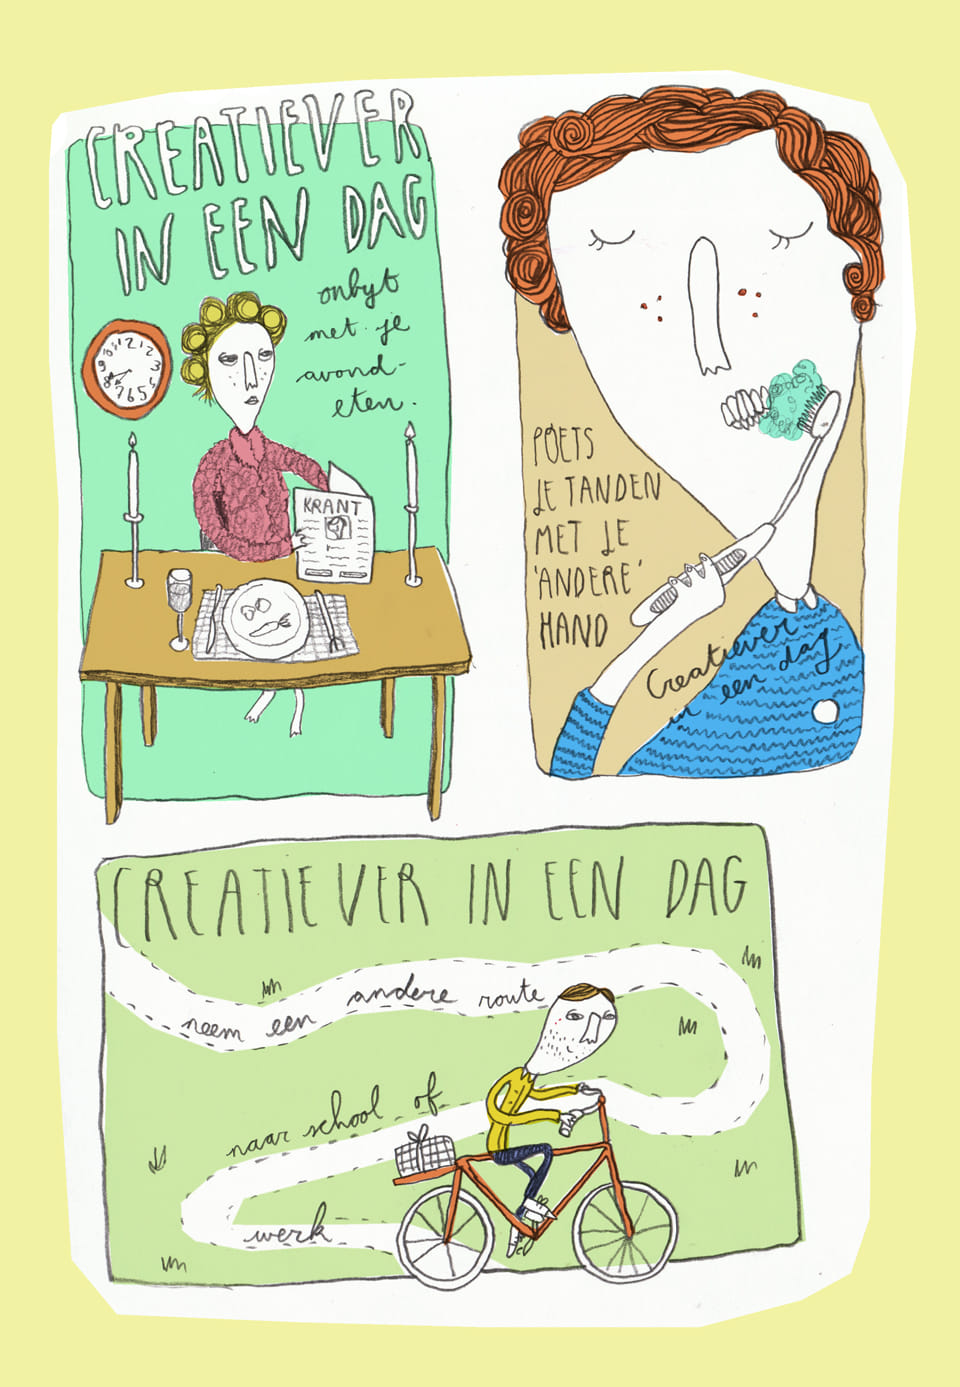 CREATIEVER
IN EEN DAG
onbyt
met je
avond-
eten.
12 1 2 3 5 6 7 8 9 10 11
KRANT
POETS
JE TANDEN
MET JE
'ANDERE'
HAND
Creatiever
in een dag
CREATIEVER IN EEN DAG
neem een andere route
naar school of
werk